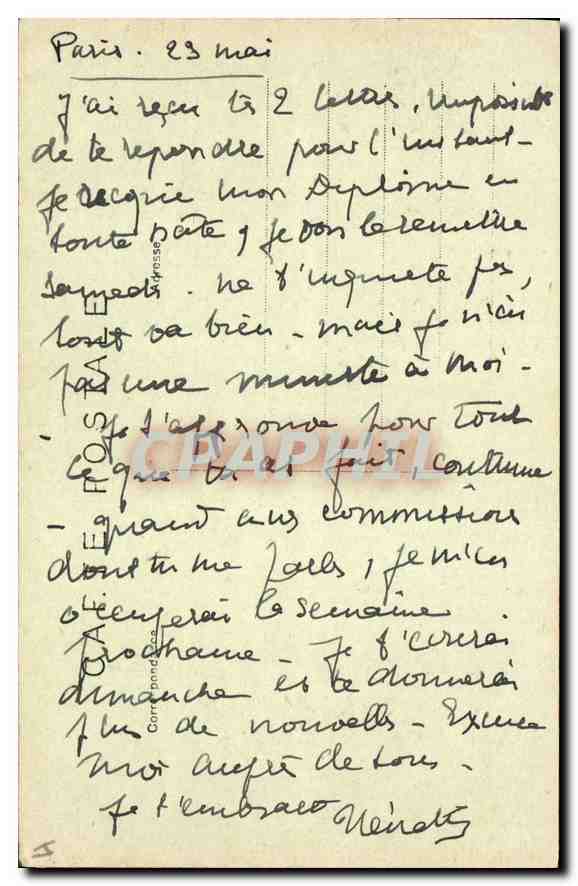 Paris. 23 mai
J'ai reçu tes 2 lettres, impossible
de te repondre pour l'instant -
je recopie mon Diplôme en
toute hâte, je dois le remettre
samedi. ne t'inquiete pas,
tout va bien - mais je n'ai
pas une minute à moi -
- je t'approuve pour tout
ce que tu as fait, continue
- quant aux commissions
dont tu me parles, je m'en
occuperai la semaine
prochaine - je t'ecrirai
dimanche et te donnerai
plus de nouvelles - Excuse
moi auprès de tous -
je t'embrasse
CARTE POSTALE
Correspondance
Adresse
CPAPHIL